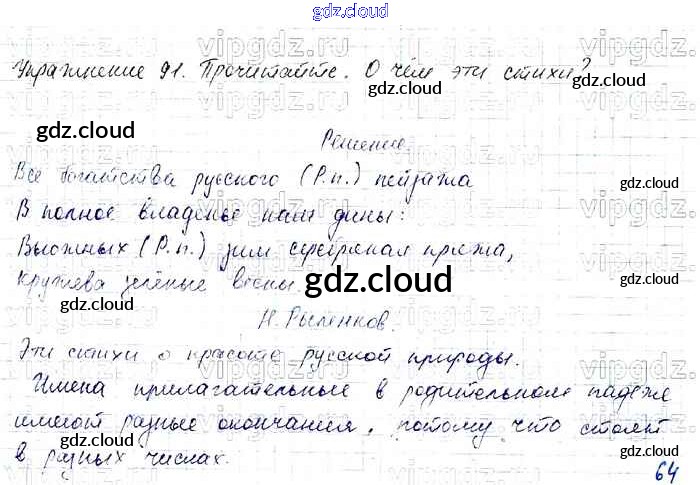 gdz.cloud
Упражнение 91. Прочитайте. О чём эти стихи?
gdz.cloud
gdz.cloud
Решение.
Все богатства русского (Р.п.) пейзажа
gdz.cloud
В полное владенье нам даны:
Вьюжных (Р.п.) зим серебряная пряжа,
кружева зелёные весны.
gdz.cloud
gdz.cloud
gdz.cloud
Н. Рыленков.
Эти стихи о красоте русской природы.
gdz.cloud
Имена прилагательные в родительном падеже
имеют разные окончания, потому что стоят
gdz.cloud
gdz.cloud
в разных числах.
64
gdz.cloud